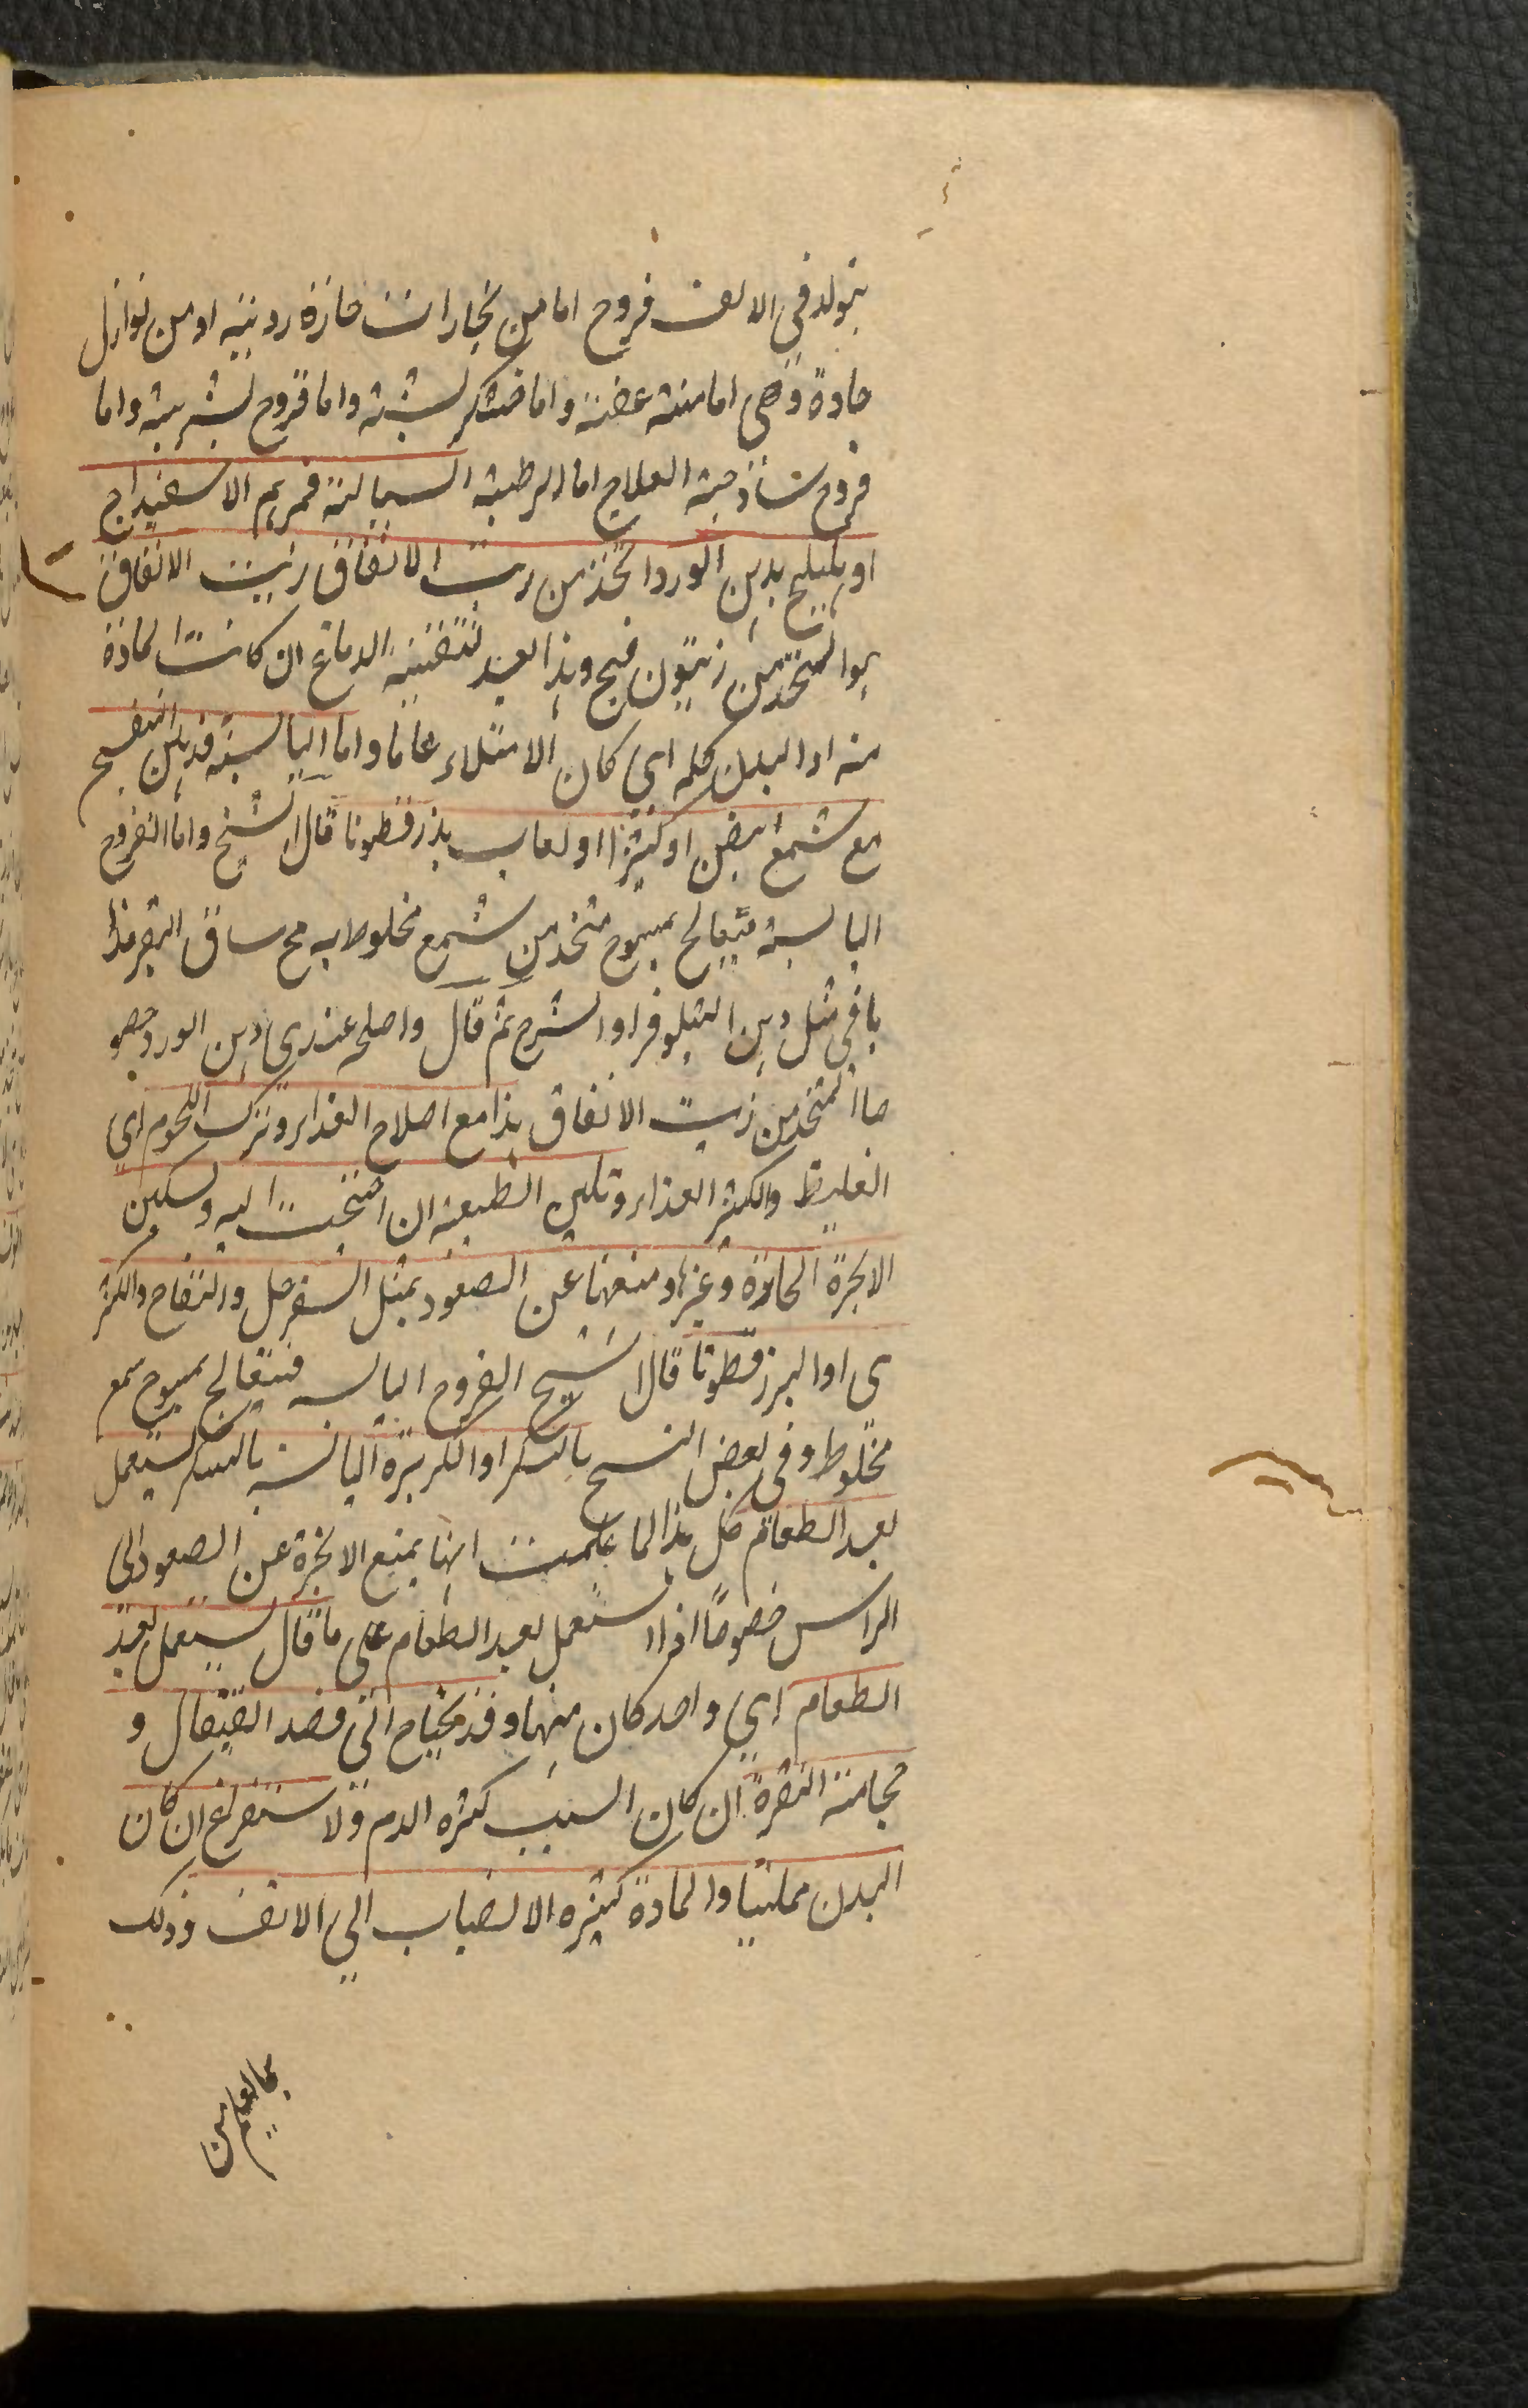 يتولد فى الانف قروح اما من بخارات حارة رديئة او من نوازل
حادة وهى اما منتنة عفنة واما خشكريشية واما قروح بثرية واما
قروح ساذجة العلاج اما الرطبة السيالة فمرهم الاسفيداج
او بدهن الورد اتخذ من زيت الانفاق زيت الانفاق
هو المتخذ من زيتون فج وهذا بعد تنقية الدماغ ان كانت المادة
منه او البدن كله اى كان الامتلاء عاما واما اليابسة فدهن البنفسج
مع شمع ابيض او كثيرا او لعاب بذر قطونا قال الشيخ واما القروح
اليابسة فيعالج بميبوح متخذ من شمع مخلوط به مخ ساق البقر مذا
با فى مثل دهن النيلوفر او الشيرج ثم قال واصلح عندى دهن الورد خصو
صا المتخذ من زيت الانفاق هذا مع اصلاح الغذاء وترك اللحوم اى
الغليظ والكثير الغذاء وتليين الطبيعة ان احتجت اليه وتسكين
الابخرة الحارة وغيرها ومنعها عن الصعود بمثل السفرجل والتفاح والكمثر
ى او البزر قطونا قال الشيخ القروح اليابسه فتعالج بميبوح شمع
مخلوط وفى بعض النسخ بالسكر او الكزبرة اليابسة بالسكر يستعمل
بعد الطعام كل هذا لما علمت انها يمنع الابخرة عن الصعود الى
الراس خصوصا اذا استعمل بعد الطعام على ما قال يستعمل بعد
الطعام اى واحد كان منها وقد يحتاج الى فصد القيفال و
حجامة النقرة ان كان السبب كثرة الدم ولاستفراغ ان كان
البدن ممتليا والمادة كثيرة الانصباب الى الانف وذلك